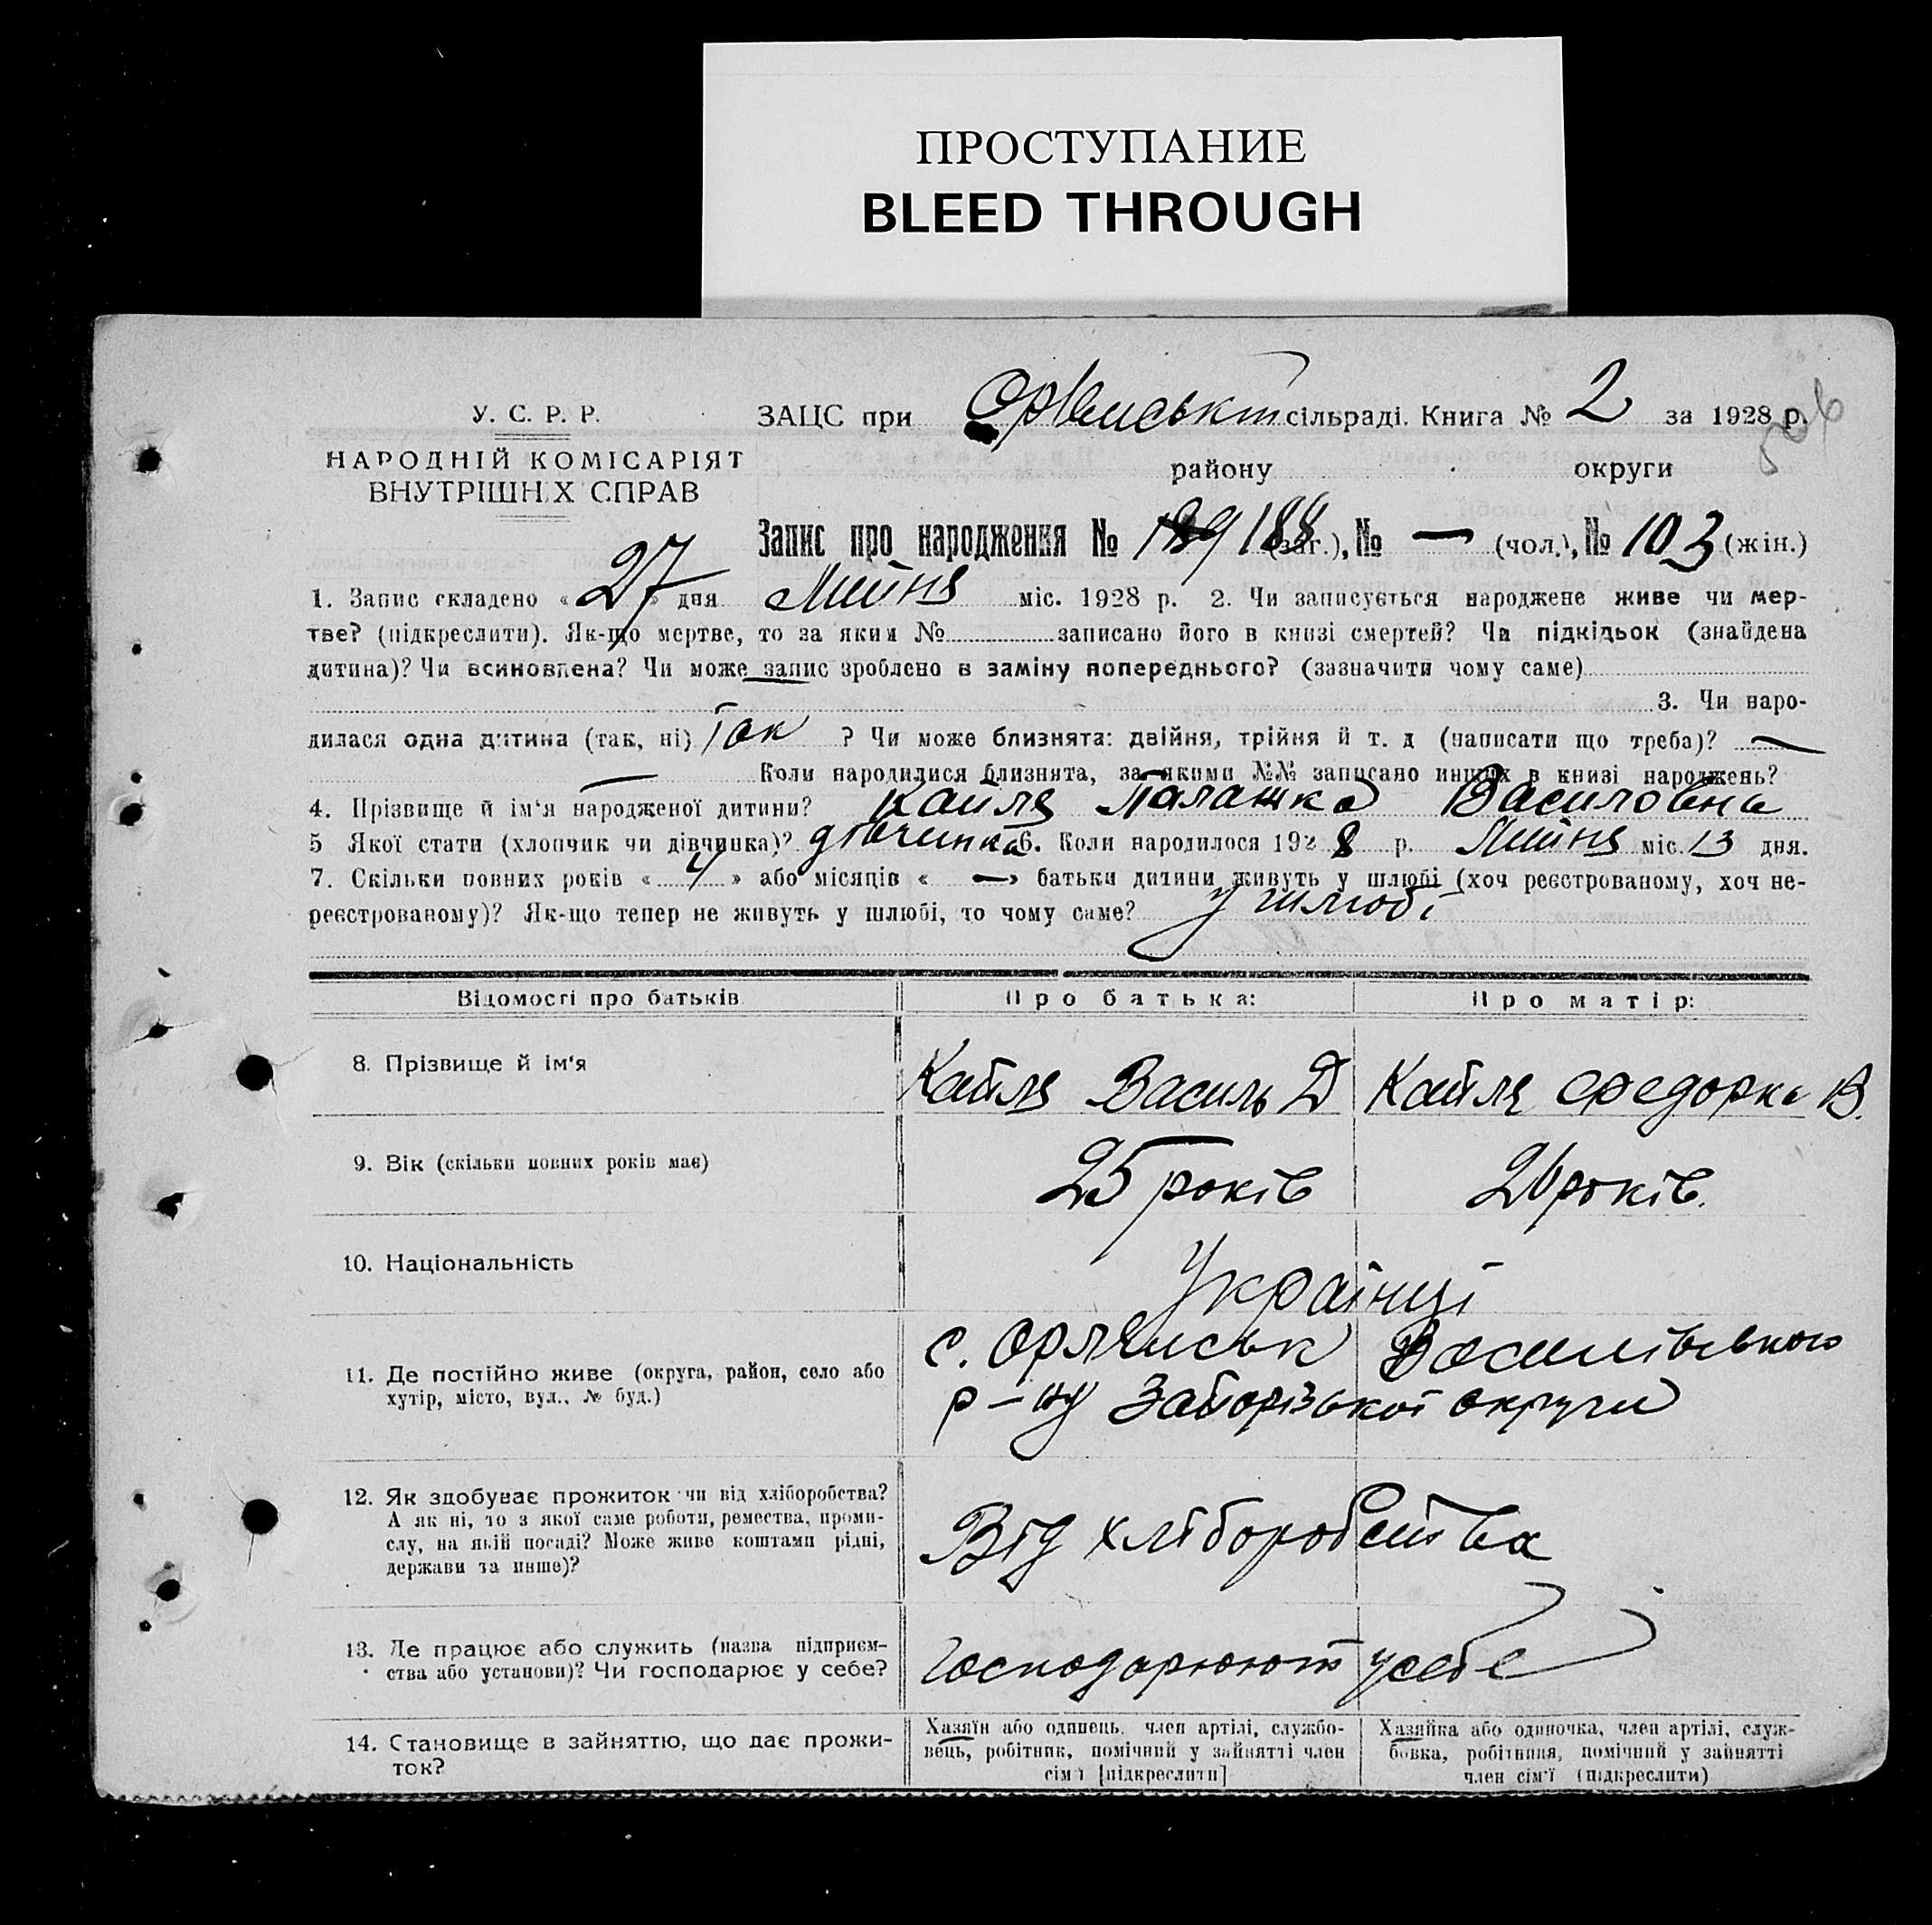 ПРОСТУПАНИЕ
BLEED THROUGH
У. С. Р. Р.
ЗАЦС при сільраді. Книга № 2 за 1928 р.
НАРОДНІЙ КОМІСАРІЯТ
ВНУТРІШНІХ СПРАВ
району округи
Запис про народження № 188 (заг.), № — (чол.), № 103 (жін.)
1. Запис складено « 27 » дня міс. 1928 р. 2. Чи записується народжене живе чи мер-
тве? (підкреслити). Як-що мертве, то за яким № записано його в книзі смертей? Чи підкідьок (знайдена
дитина)? Чи всиновлена? Чи може запис зроблено в заміну попереднього? (зазначити чому саме)
3. Чи наро-
дилася одна дитина (так, ні) Так ? Чи може близнята: двійня, трійня й т. д (написати що треба)? —
— Коли народилися близнята, за якими №№ записано инших в книзі народжень?
4. Прізвище й ім'я народженої дитини? Палажка Василовна
5 Якої стати (хлопчик чи дівчинка)? дівчинка 6. Коли народилося 1928 р. міс. 13 дня.
7. Скільки повних років « 4 » або місяців « — » батьки дитини живуть у шлюбі (хоч реєстрованому, хоч не-
реєстрованому)? Як-що тепер не живуть у шлюбі, то чому саме? У шлюбі
Відомості про батьків Про батька: Про матір:
8. Прізвище й ім'я Василь Д Федорка В.
9. Вік (скільки повних років має) 25 років 26 років.
10. Національність Українці
11. Де постійно живе (округа, район, село або
хутір, місто, вул., № буд.)
с. Орлянськ Василівського
р-ну Запорізької округи
12. Як здобуває прожиток чи від хліборобства?
А як ні, то з якої саме роботи, ремества, проми-
слу, на якій посаді? Може живе коштами рідні,
держави та инше)?
Від хліборобства
13. Де працює або служить (назва підприєм-
ства або установи)? Чи господарює у себе?
Господарюют у себе
14. Становище в зайняттю, що дає прожи-
ток?
Хазяїн або одинець, член артілі, службо-
вець, робітник, помічний у зайнятті член
сім'ї [підкреслити]
Хазяйка або одиночка, член артілі, служ-
бовка, робітниця, помічний у зайнятті
член сім'ї (підкреслити)